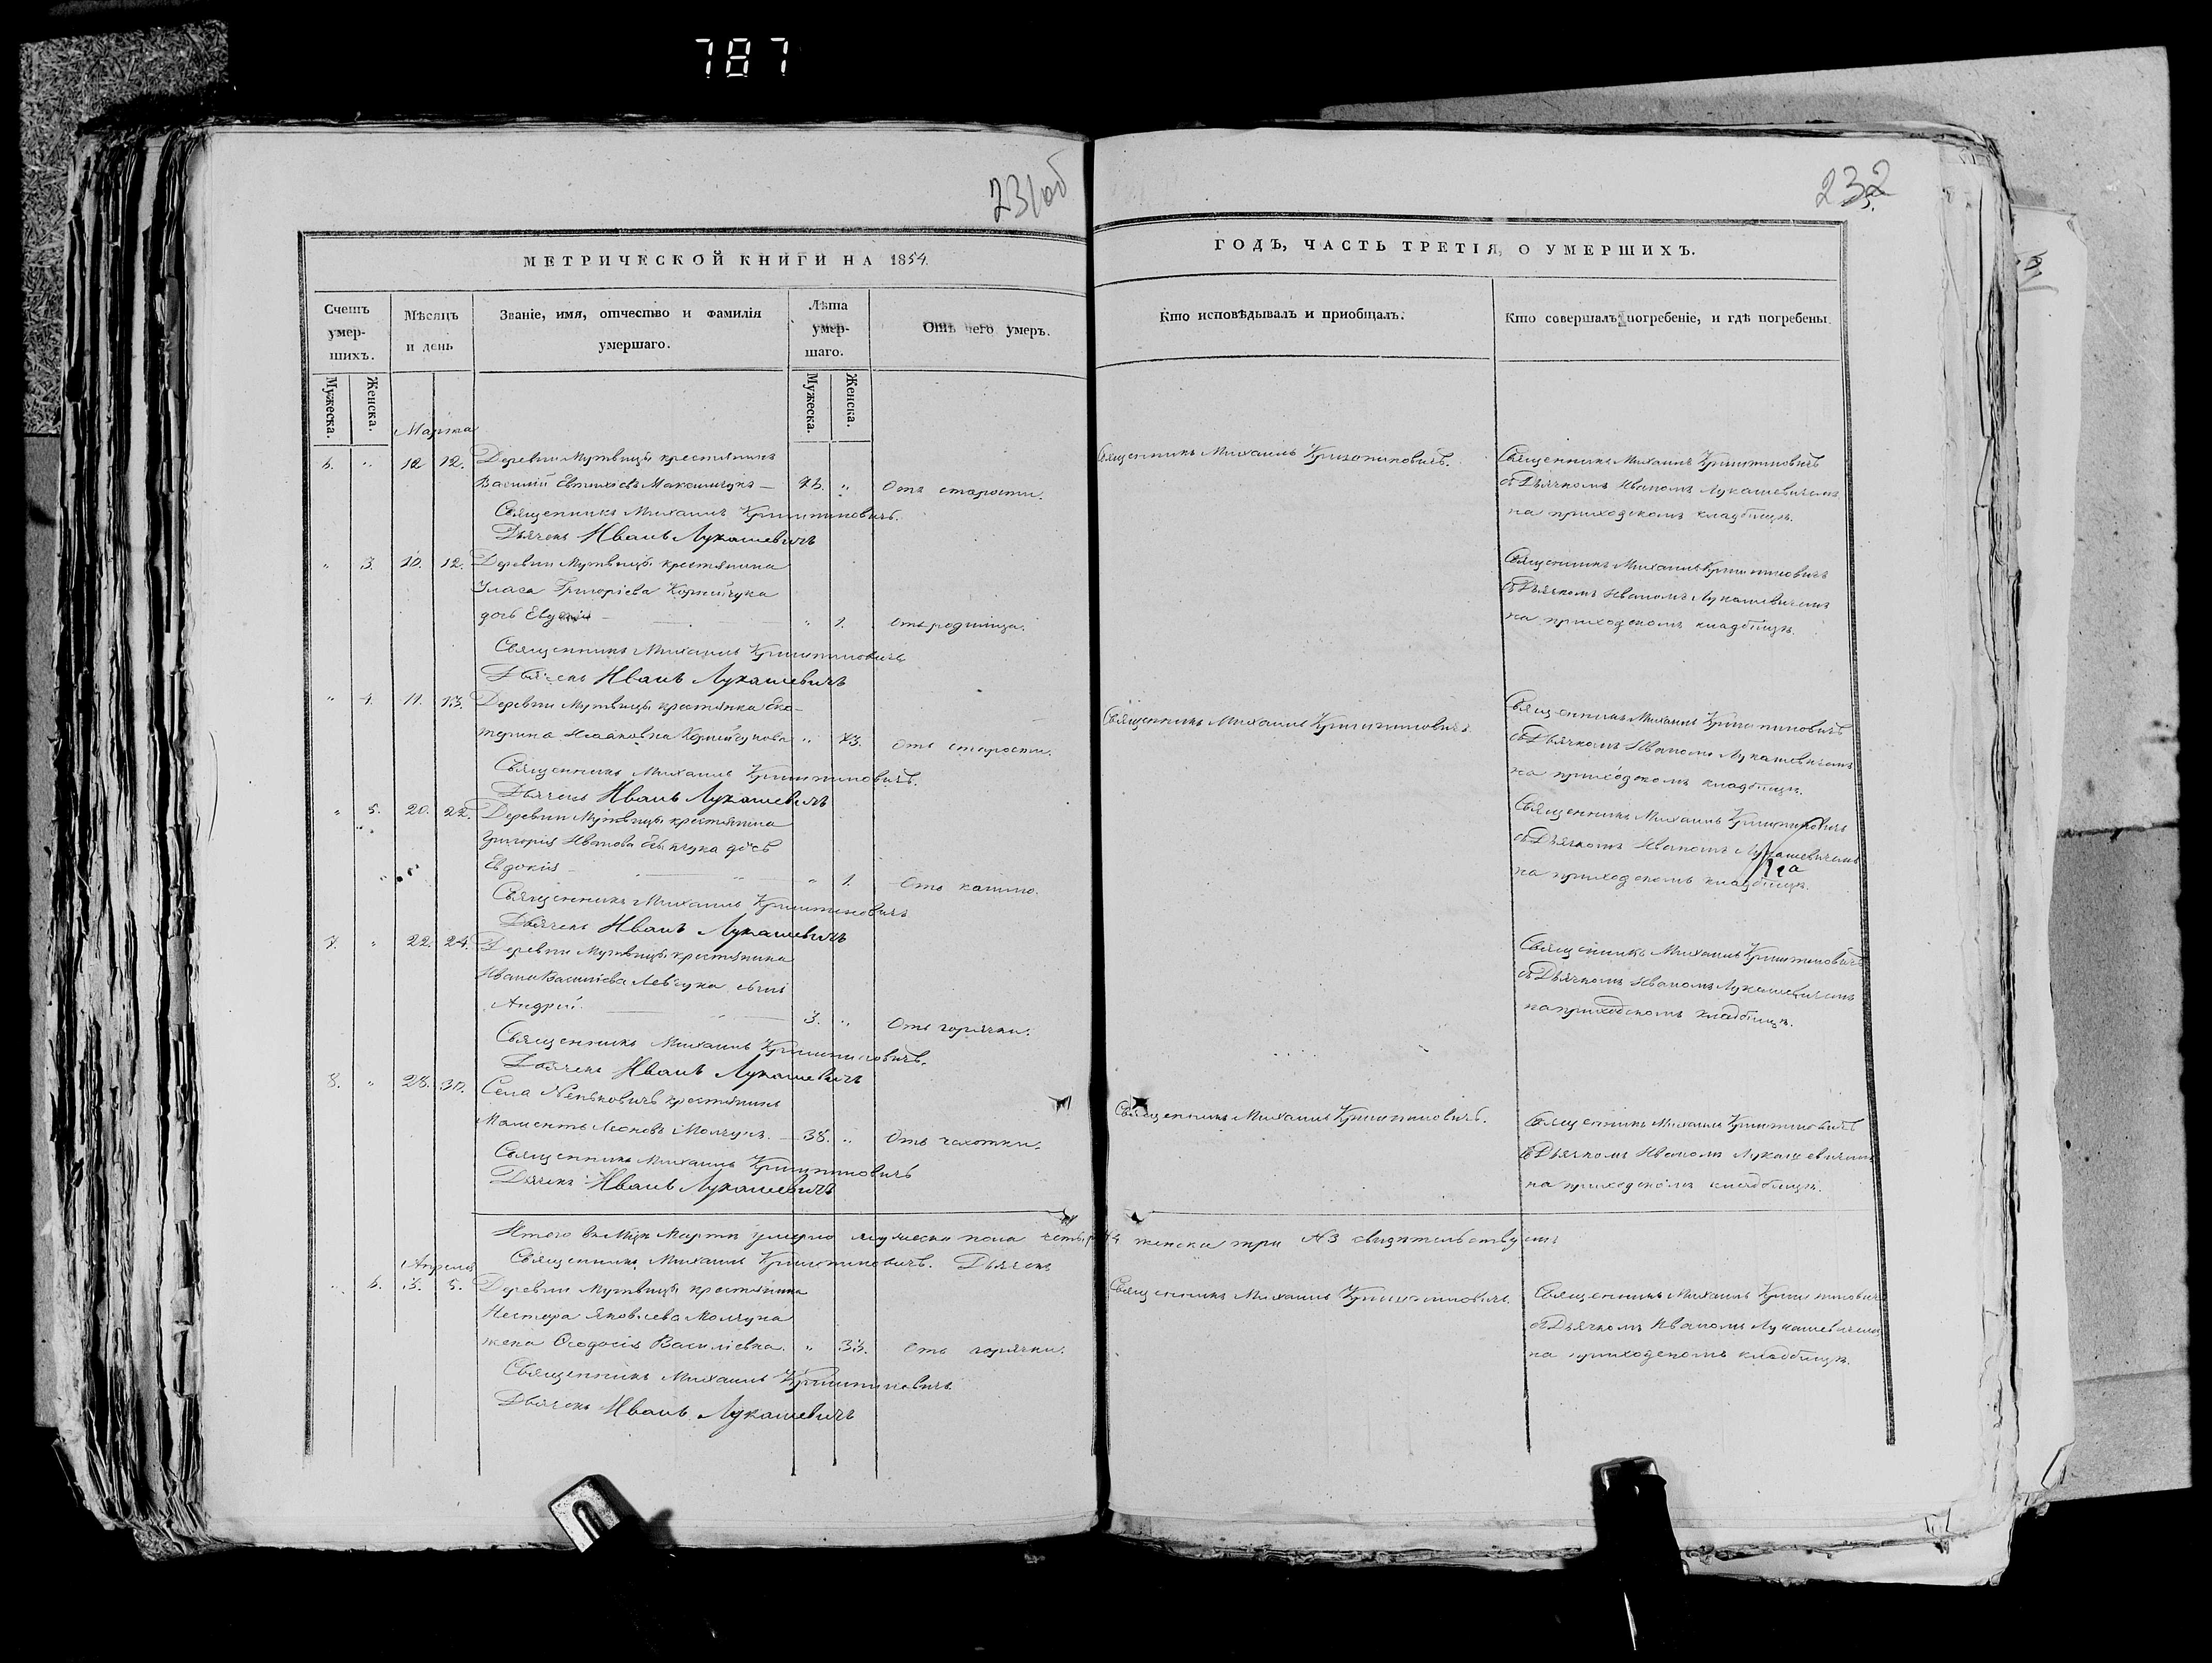 787
231об
232
МЕТРИЧЕСКОЙ КНИГИ НА 1854.
ГОДЪ, ЧАСТЬ ТРЕТІЯ, О УМЕРШИХЪ.
Счетъ умер-шихъ.
Мѣсяцъ и день
Званіе, имя, отчество и фамилія умершаго.
Лѣта умер-шаго.
Отъ чего умеръ.
Кто исповѣдывалъ и приобщалъ.
Кто совершалъ погребеніе, и гдѣ погребены.
Мужеска. Женска.
Мужеска. Женска.
Марта
6. „ 12 12. Деревни Мутвицы крестьянинъ
Священникъ Михаилъ
Священникъ Михаилъ
Василій Евтихіевъ Максимчукъ — „ Отъ старости.
съ Дьячкомъ Иваномъ Лукашевичемъ
Священникъ Михаилъ
на приходскомъ кладбищѣ.
Дьячекъ Иванъ Лукашевичъ
„ 3. 10. 12. Деревни Мутвицы крестьянина
Священникъ Михаилъ
Григоріева Корнійчука
съ Дьячкомъ Иваномъ Лукашевичемъ
дочь „ 1. Отъ родимца.
на приходскомъ кладбищѣ.
Священникъ Михаилъ
Дьячекъ Иванъ Лукашевичъ
„ 4. 11. 13. Деревни Мутвицы крестьянка Ека-
Священникъ Михаилъ
Священникъ Михаилъ
терина Исааковна Корнійчукова „ 73. Отъ старости.
съ Дьячкомъ Иваномъ Лукашевичемъ
Священникъ Михаилъ
на приходскомъ кладбищѣ.
Дьячекъ Иванъ Лукашевичъ
„ 5. 20. 22. Деревни Мутвицы крестьянина
Священникъ Михаилъ
Григорія Иванова дочь
съ Дьячкомъ Иваномъ Лукашевичемъ
Евдокія „ 1. Отъ кашлю.
на приходскомъ кладбищѣ.
Священникъ Михаилъ
Дьячекъ Иванъ Лукашевичъ
7. „ 22. 24. Деревни Мутвицы крестьянина
Священникъ Михаилъ
Ивана Василіева Левчука сынъ
съ Дьячкомъ Иваномъ Лукашевичемъ
Андрей 3. „ Отъ горячки.
на приходскомъ кладбищѣ.
Священникъ Михаилъ
Дьячекъ Иванъ Лукашевичъ
8. „ 28. 30. Села крестьянинъ
Священникъ Михаилъ
Священникъ Михаилъ
Леоновъ Молчунъ. — 38. „ Отъ чахотки.
съ Дьячкомъ Иваномъ Лукашевичемъ
Священникъ Михаилъ
на приходскомъ кладбищѣ.
Дьячекъ Иванъ Лукашевичъ
Итого въ Марта умерло мужеска пола четыре 4 женска три №3 свидѣтельствуемъ
Священникъ Михаилъ Дьячекъ
Апреля
„ 6. 3. 5. Деревни Мутвицы крестьянина
Священникъ Михаилъ
Священникъ Михаилъ
Нестора Яковлева Молчуна
съ Дьячкомъ Иваномъ Лукашевичемъ
жена Ѳеодосія Василіевна. „ 33. Отъ горячки.
на приходскомъ кладбищѣ.
Священникъ Михаилъ
Дьячекъ Иванъ Лукашевичъ